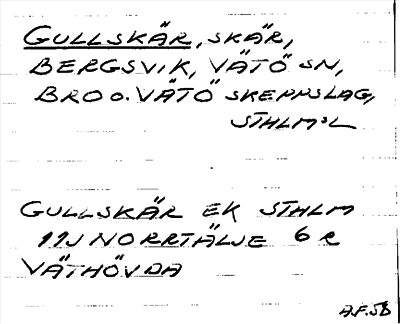 GULLSKÄR, SKÄR,
BERGSVIK, VÄTÖ SN,
BRO O. VÄTÖ SKEPPSLAG,
STHLMS L
GULLSKÄR EK STHLM
11J NORRTÄLJE 6 R
VÄTHÖVDA
A.F. 53